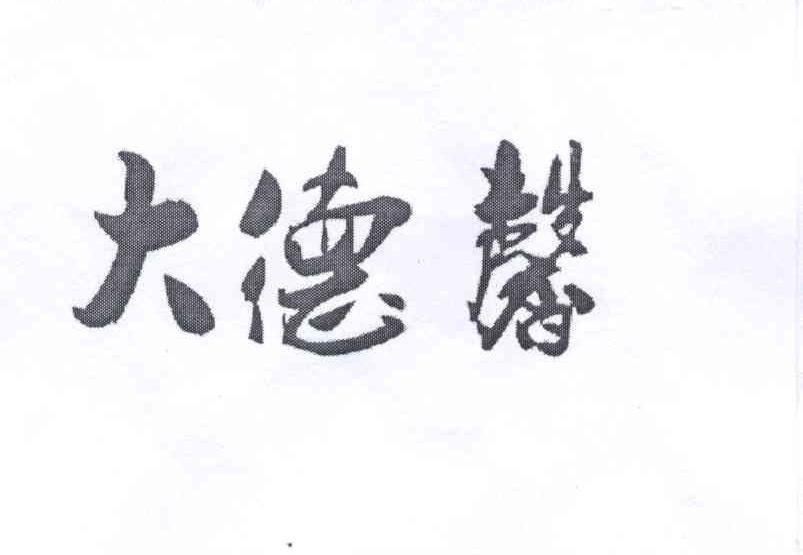 大德馨